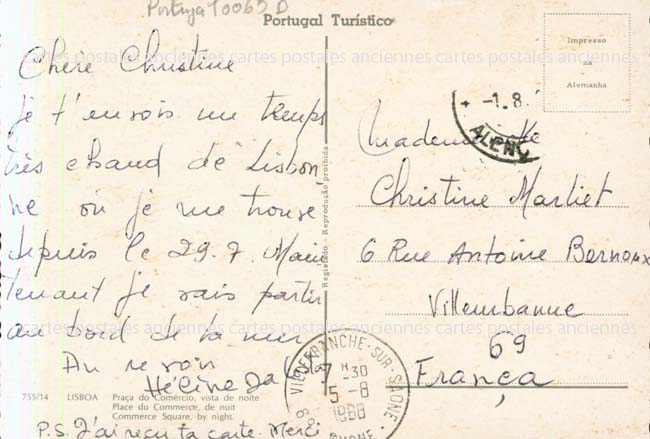 Portugal 10065 D
Portugal Turístico
Impresso
na
Alemanha
Chère Christine
je t'envois un temps
très chaud de Lisbon
ne où je me trouve
depuis le 29.7 Main
tenant je vais partir
au bord de la mer
Au revoir
Hélène
755/14 LISBOA Praça do Comércio, vista de noite
Place du Commerce, de nuit
Commerce Square, by night.
P.S. J'ai reçu ta carte. Merci
Registado - Reprodução proibida
-1.8
Mademoiselle
Christine Marliet
6 Rue Antoine Bernoux
Villeurbanne
69
França
VILLEFRANCHE-SUR-SAONE
7 H 30
5-8
1968
RHONE
cartes postales anciennes cartes postales anciennes cartes postales anciennes
cartes postales anciennes cartes postales anciennes cartes postales anciennes